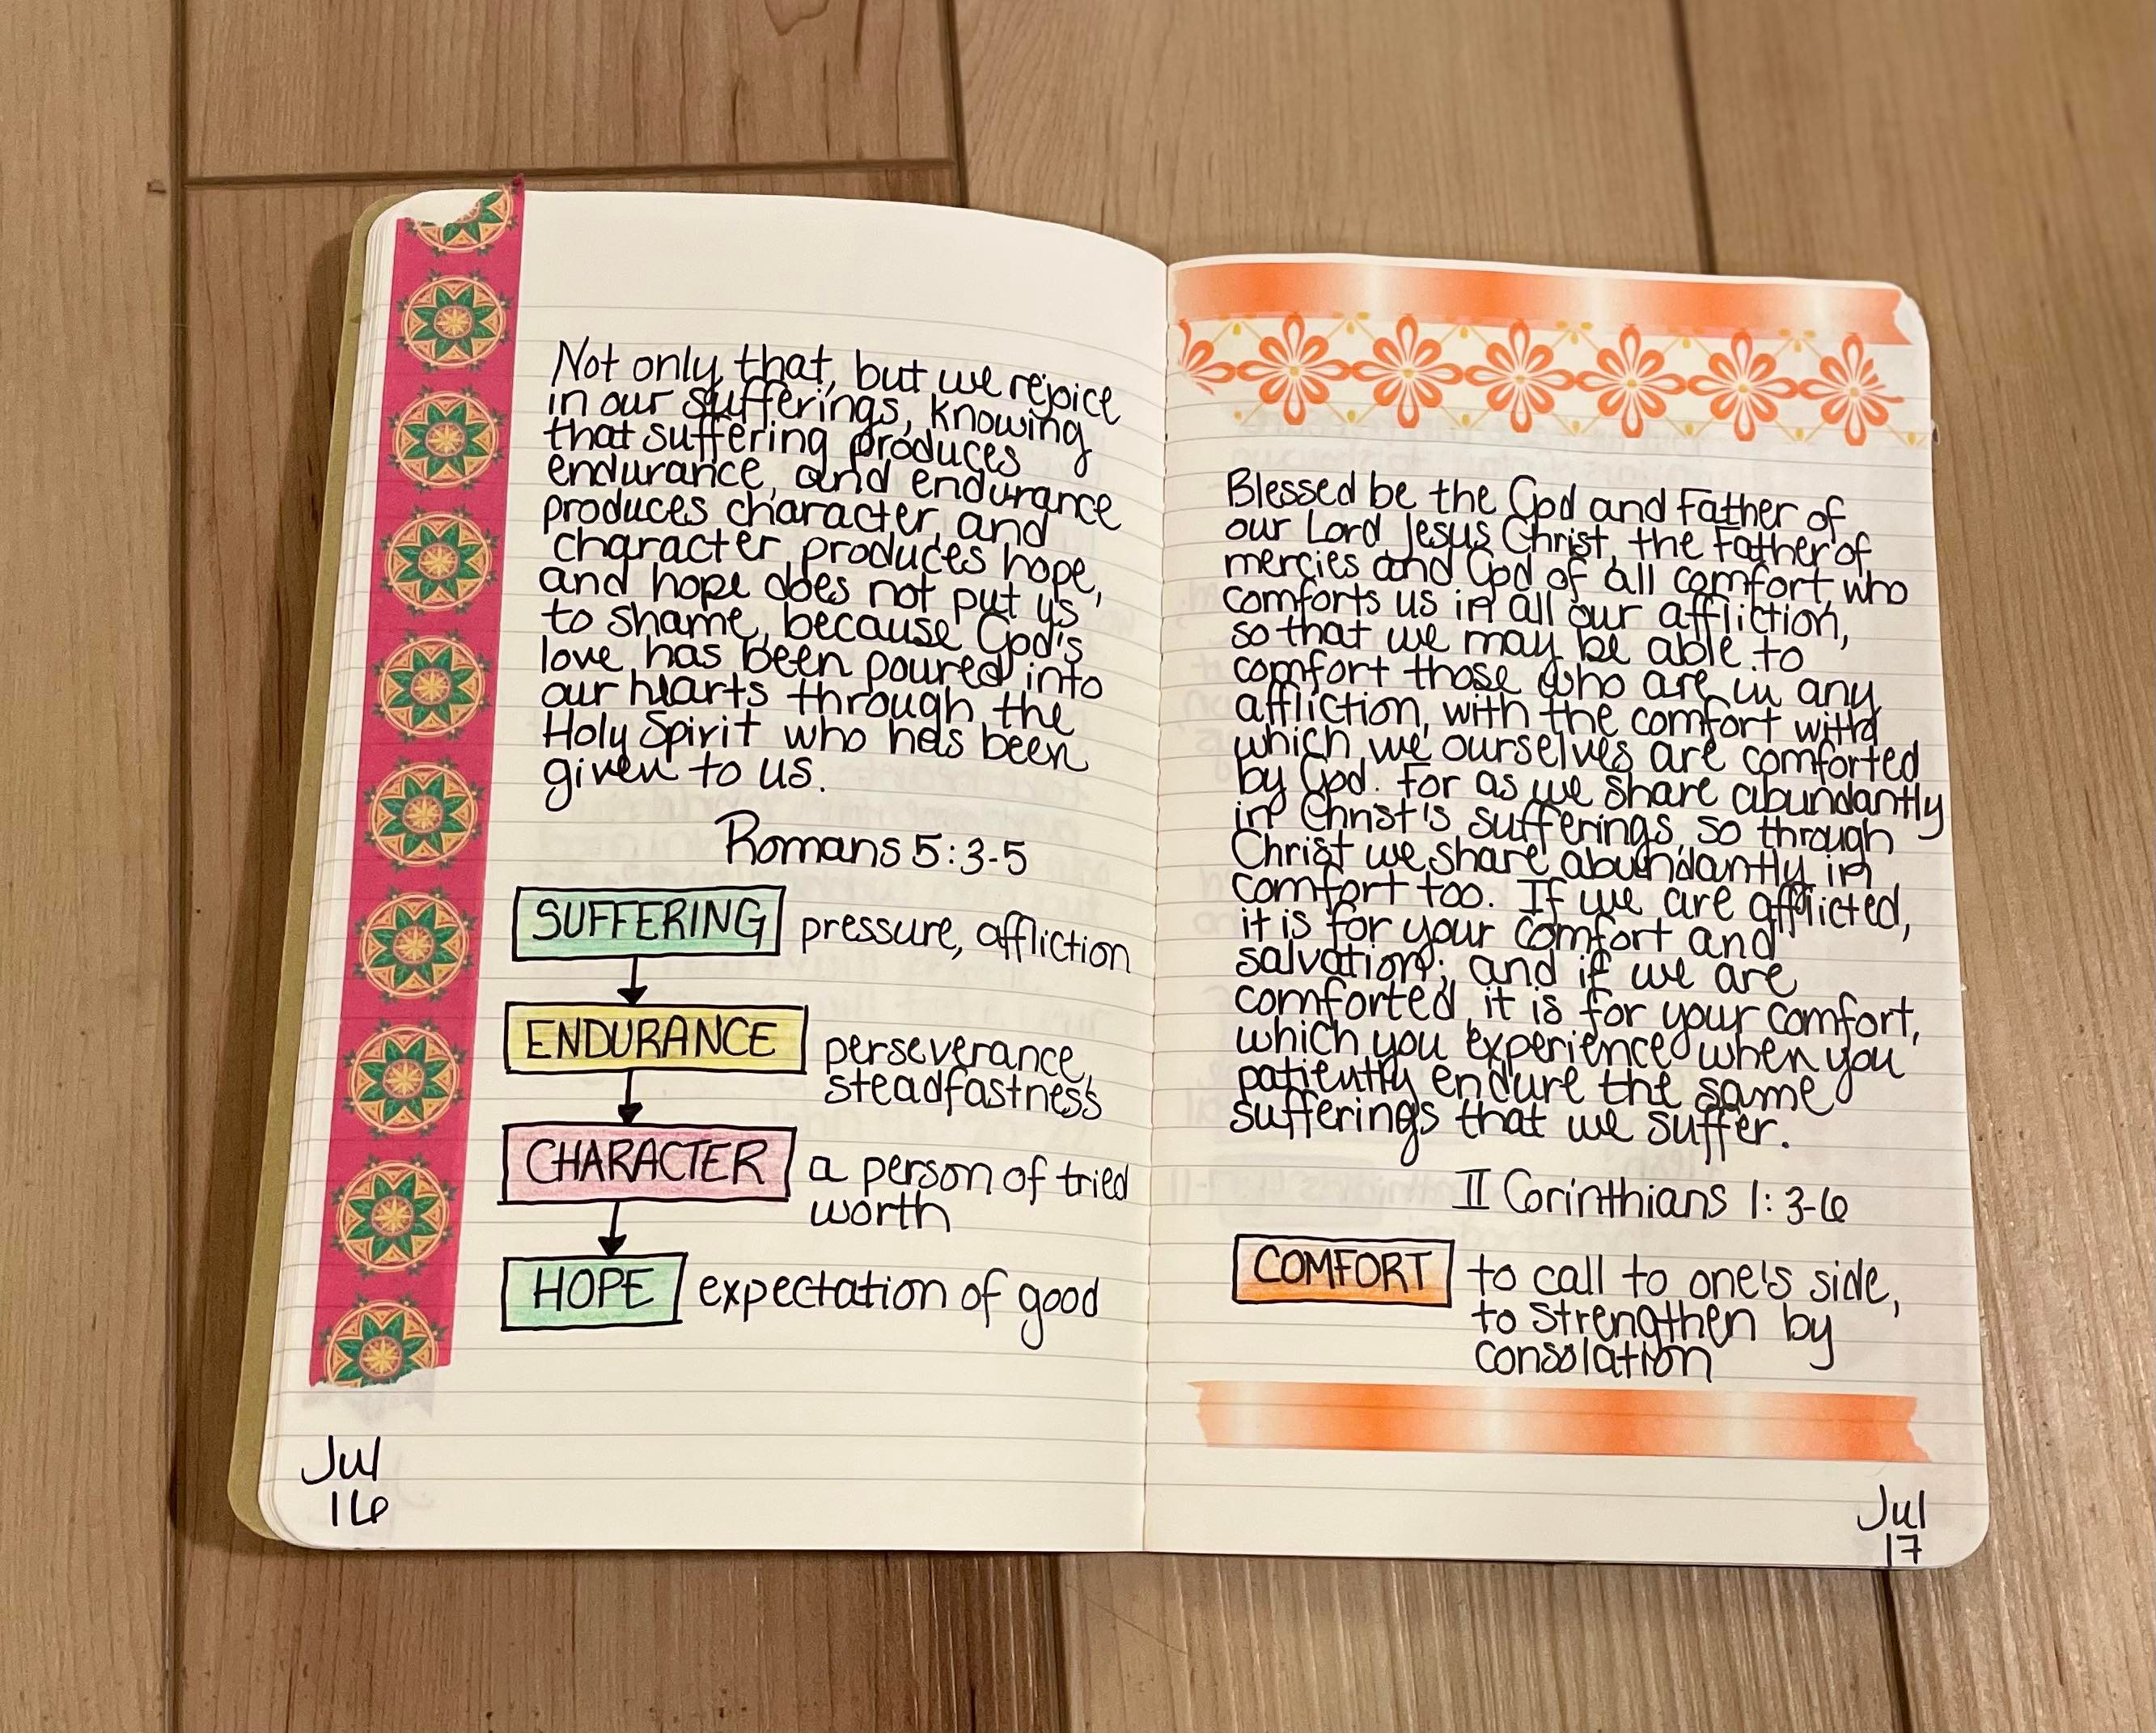 Not only that, but we rejoice
in our sufferings, knowing
that suffering produces
endurance, and endurance
produces character, and
character produces hope,
and hope does not put us
to shame, because God's
love has been poured into
our hearts through the
Holy Spirit who has been
given to us.
Romans 5:3-5
SUFFERING pressure, affliction
ENDURANCE perseverance,
steadfastness
CHARACTER a person of tried
worth
HOPE expectation of good
Jul
16
Blessed be the God and Father of
our Lord Jesus Christ, the Father of
mercies and God of all comfort, who
comforts us in all our affliction,
so that we may be able to
comfort those who are in any
affliction, with the comfort with
which we ourselves are comforted
by God. For as we share abundantly
in Christ's sufferings, so through
Christ we share abundantly in
comfort too. If we are afflicted,
it is for your comfort and
salvation; and if we are
comforted, it is for your comfort,
which you experience when you
patiently endure the same
sufferings that we suffer.
II Corinthians 1:3-6
COMFORT to call to one's side,
to strengthen by
consolation
Jul
17